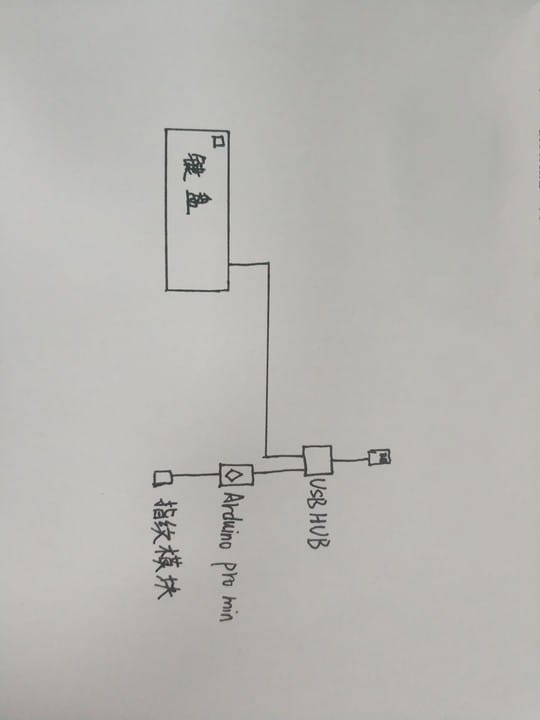 USB HUB
Arduino pro min
键盘
指纹模块